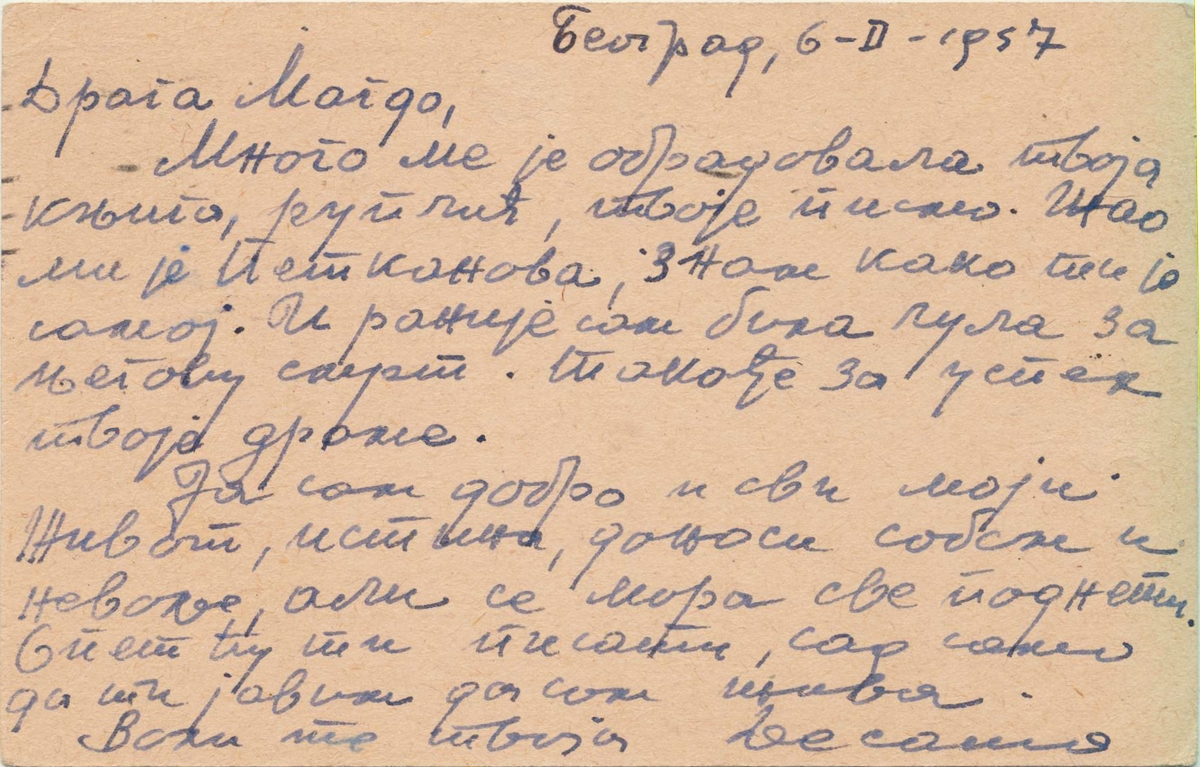 Београд, 6-II-1957
Драга Магдо,
Много ме је обрадовала твоја
књига, рупчић, твоје писмо. Жао
ми је Петканова, знам како ти је
самој. И раније сам била чула за
његову смрт. Такође за успех
твоје драме.
Ја сам добро и сви моји.
Живот, истина, доноси собом и
невоље, али се мора све поднети.
Опет ћу ти писати, сад само
да ти јавим да сам жива.
Воли те твоја Десанка